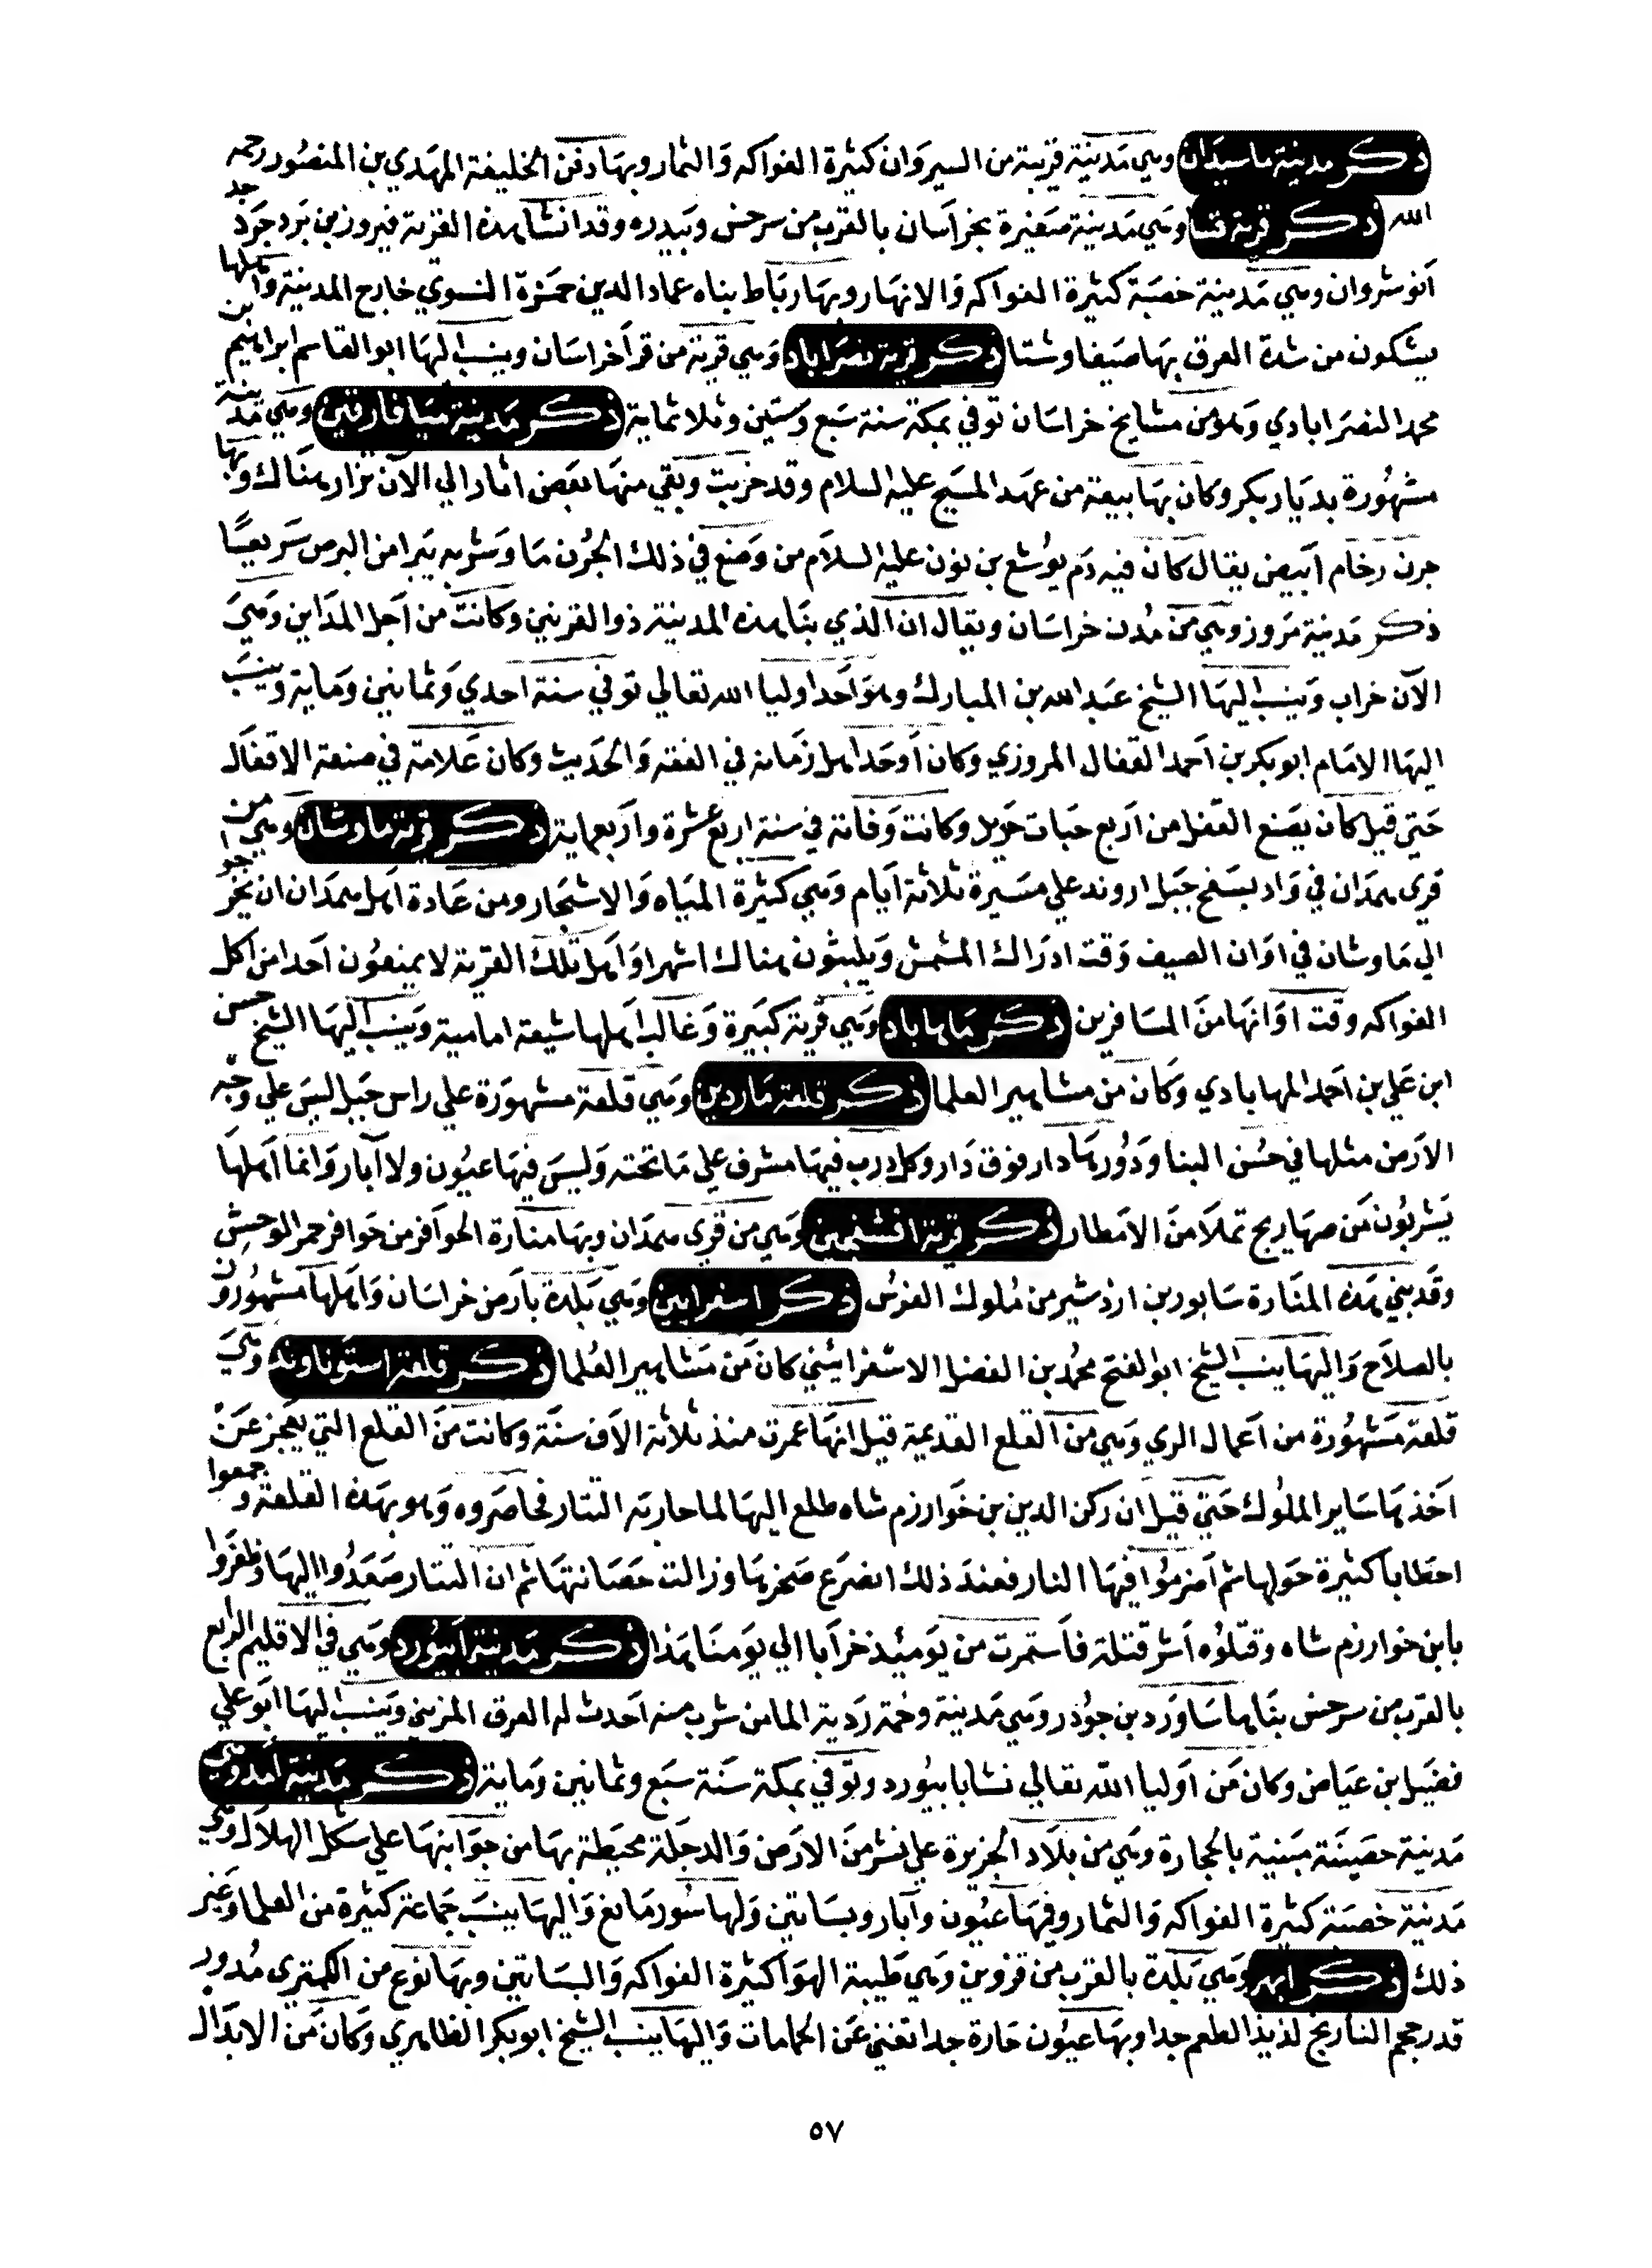 ذكر مدينة ماسبدان وهي مدينة قريبة من السيروان كثيرة الفواكه والثمار وبها دفن الخليفة المهدي بن المنصور رحمه
الله ذكر قرية نسا وهي مدينة صغيرة بخراسان بالقرب من سرخس وبيدره وقد انشا هذه القرية فيروز بن يزدجرد جد
انوشروان وهي مدينة خصبة كثيرة الفواكه والانهار وبها رباط بناه عماد الدين حمزة النسوي خارج المدينة واهلها
يشكون من شدة العرق بها صيفا وشتا ذكر قرية نصراباد وهي قرية من قرا خراسان وينسب اليها ابو القاسم ابراهيم بن
محمد النصرابادي وهو من مشايخ خراسان توفي بمكة سنة سبع وستين وثلاثماية ذكر مدينة ميافارقين وهي مدينة
مشهورة بديار بكر وكان بها بيعة من عهد المسيح عليه السلام وقد خربت وبقي منها بعض اثار الي الان تزار هناك وبها
جرن رخام ابيض يقال كان فيه دم يوشع بن نون عليه السلام من وضع في ذلك الجرن ما وشربه يبرا من البرص سريعا
ذكر مدينة مروز وهي من مدن خراسان ويقال ان الذي بنا هذه المدينة ذو القرنين وكانت من اجل المداين وهي
الان خراب وينسب اليها الشيخ عبد الله بن المبارك وهو احد اوليا الله تعالي توفي سنة احدي وثمانين وماية وينسب
اليها الامام ابو بكر بن احمد القفال المروزي وكان اوحد اهل زمانه في الفقه والحديث وكان علامة في صنعة الاقفال
حتي قيل كان يصنع القفل من اربع حبات حويل وكانت وفاته في سنة اربع عشرة واربعماية ذكر قرية ماوشان وهي من
قري همدان في واد بسفح جبل اروند علي مسيرة ثلاثة ايام وهي كثيرة المياه والاشجار ومن عادة اهل همدان ان يخرجوا
الي ماوشان في اوان الصيف وقت ادراك المشمش ويلبثون هناك اشهرا واهل تلك القرية لا يمنعون احدا من اكل
الفواكه وقت اوانها من المسافرين ذكر ماهاباد وهي قرية كبيرة وغالب اهلها شيعة امامية وينسب اليها الشيخ حسن
ابن علي بن احمد المهابادي وكان من مشاهير العلما ذكر قلعة ماردين وهي قلعة مشهورة علي راس جبل ليس علي وجه
الارض مثلها في حسن البنا ودورها دار فوق دار وكل درب فيها مشرف علي ما تحته وليس فيها عيون ولا آبار وانما اهلها
يشربون من صهاريج تملا من الامطار ذكر قرية وهي من قري همدان وبها منارة الحوافر من حوافر حمر الوحش
وقد بني هذه المنارة سابور بن اردشير من ملوك الفرس ذكر اسفرايين وهي بلدة بارض خراسان واهلها مشهورون
بالصلاح واليها ينسب الشيخ ابو الفتح محمد بن الفضل الاسفرايني كان من مشاهير العلما ذكر قلعة استوناوند وهي
قلعة مشهورة من اعمال الري وهي من القلع القديمة قيل انها عمرت منذ ثلاثة الاف سنة وكانت من القلع التي يعجز عن
اخذها ساير الملوك حتي قيل ان ركن الدين بن خوارزم شاه طلع اليها لما حاربته التتار فحاصروه وهو بهذه القلعة وجمعوا
احطابا كثيرة حولها ثم اضرموا فيها النار فعند ذلك انصرع صخرها وزالت حصانتها ثم ان التتار صعدوا اليها وظفروا
بابن خوارزم شاه وقتلوه اشر قتلة فاستمرت من يومئذ خرابا الي يومنا هذا ذكر مدينة ابيورد وهي في الاقليم الرابع
بالقرب من سرخس بناها ساورد بن جوذر وهي مدينة وخمة ردية الما من شرب منه احدث له العرق المزني وينسب اليها ابو علي
فضيل بن عياض وكان من اوليا الله تعالي نشا بابيورد وتوفي بمكة سنة سبع وثمانين وماية ذكر مدينة امد وهي
مدينة حصينة مبنية بالحجارة وهي من بلاد الجزيرة علي نشز من الارض والدجلة محيطة بها من جوانبها علي شكل الهلال وهي
مدينة خصبة كثيرة الفواكه والثمار وفيها عيون وآبار وبساتين ولها سور مانع واليها ينسب جماعة كثيرة من العلما وغير
ذلك ذكر ابهر وهي بلدة بالقرب من قزوين وهي طيبة الهوا كثيرة الفواكه والبساتين وبها نوع من الكمتري مدور
قدر حجم النارنج لذيذ الطعم جدا وبها عيون حارة جدا تغني عن الحمامات واليها ينسب الشيخ ابو بكر الظاهري وكان من الابدال
٥٧